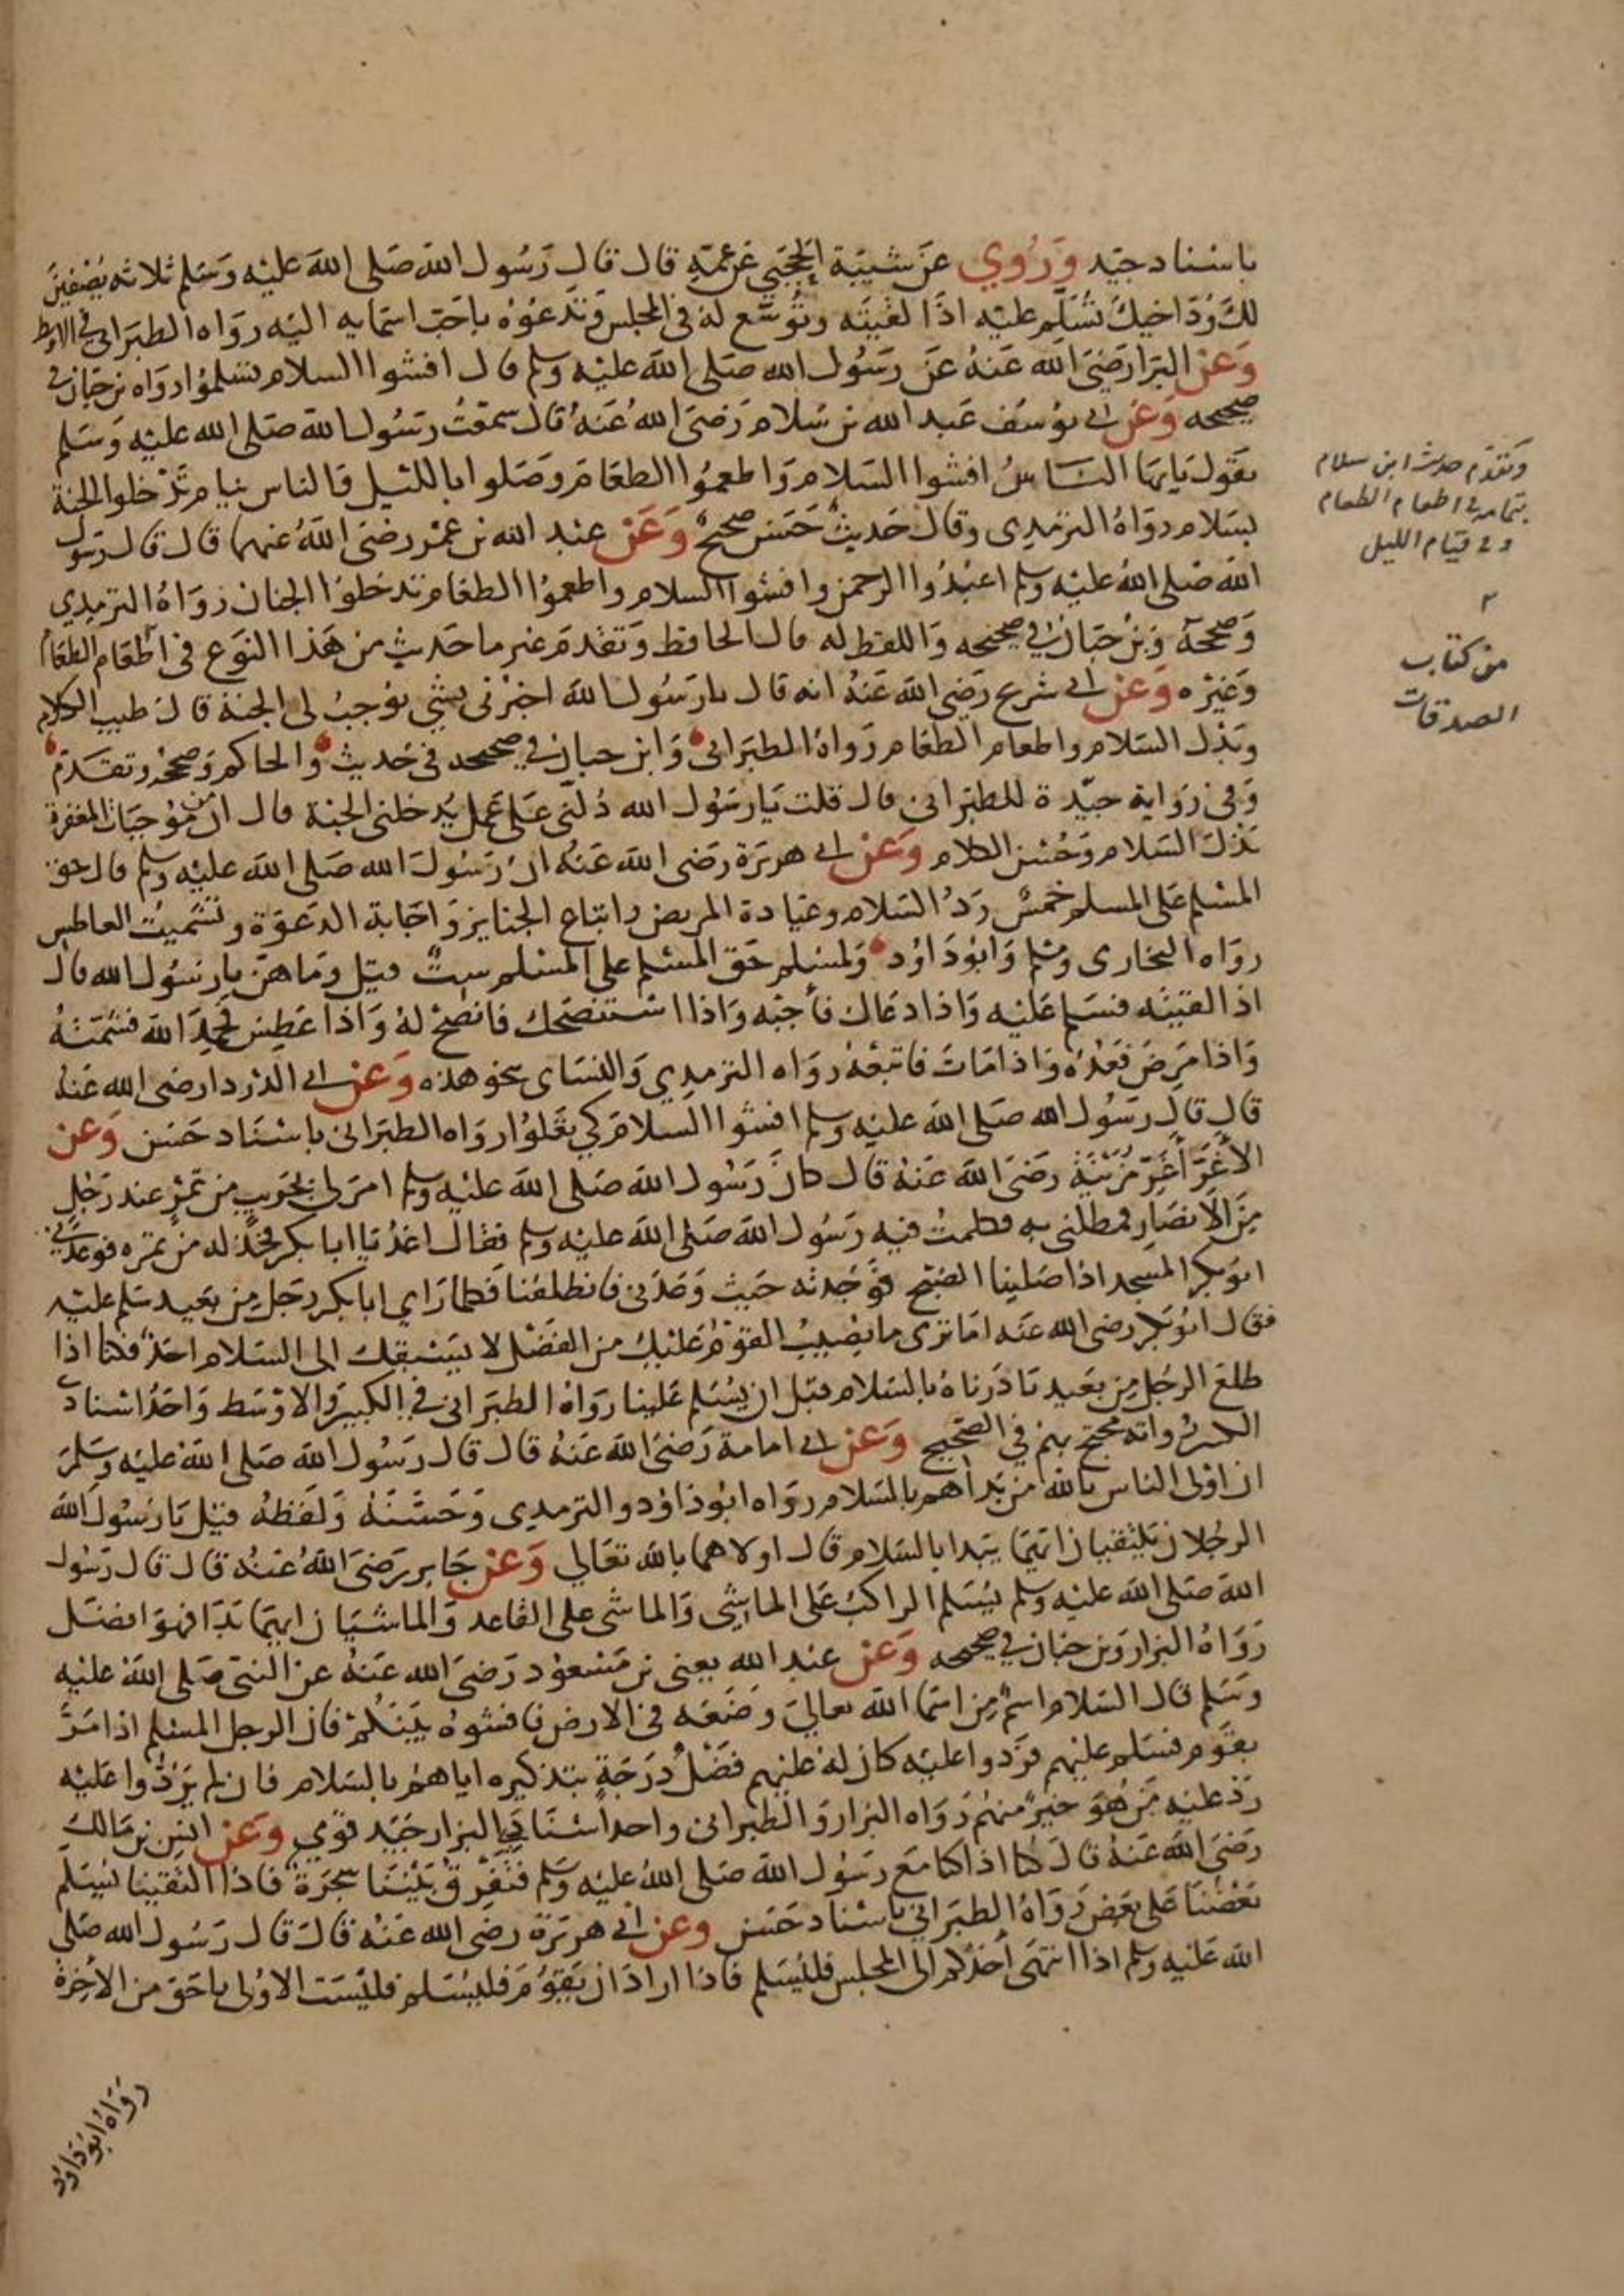 باسناد جيد وَرُوي عن شيبة الحجبي عن عمه قال قال رسول الله صلى الله عليه وسلم ثلاثه يصفين
لك ود اخيك تسلم عليه اذا لقيته وتوسع له في المجلس وتدعوه باحب اسمايه اليه رواه الطبراني في الاوسط
وعن البرا رضي الله عنه عن رسول الله صلى الله عليه وسلم قال افشوا السلام تسلموا رواه بن حبان في
صحيحه وعن ابي يوسف عبد الله بن سلام رضي الله عنه قال سمعت رسول الله صلى الله عليه وسلم
يقول يايها الناس افشوا السلام واطعموا الطعام وصلوا بالليل والناس نيام تدخلوا الجنة
بسلام رواه الترمذي وقال حديث حسن صحيح وعن عبد الله بن عمر رضي الله عنهما قال قال رسول
الله صلى الله عليه وسلم اعبدوا الرحمن وافشوا السلام واطعموا الطعام تدخلوا الجنان رواه الترمذي
وصححه وبن حبان في صحيحه واللفظ له قال الحافظ وتقدم غير ما حديث من هذا النوع في اطعام الطعام
وغيره وعن ابي شريح رضي الله عنه انه قال يا رسول الله اخبرني بشي يوجب لي الجنة قال طيب الكلام
وبذل السلام واطعام الطعام رواه الطبراني وابن حبان في صحيحه في حديث والحاكم وصححه وتقدم
وفي رواية جيدة للطبراني قال قلت يا رسول الله دلني على عمل يدخلني الجنة قال ان من موجبات المغفرة
بذل السلام وحسن الكلام وعن ابي هريرة رضي الله عنه ان رسول الله صلى الله عليه وسلم قال حق
المسلم على المسلم خمس رد السلام وعيادة المريض واتباع الجنايز واجابة الدعوة وتشميت العاطس
رواه البخاري ومسلم وابو داود ولمسلم حق المسلم على المسلم ست قيل وما هن يا رسول الله قال
اذا لقيته فسلم عليه واذا دعاك فأجبه واذا استنصحك فانصح له واذا عطس فحمد الله فشمته
واذا مرض فعده واذا مات فاتبعه رواه الترمذي والنساي بنحو هذه وعن ابي الدردا رضي الله عنه
قال قال رسول الله صلى الله عليه وسلم افشوا السلام كي تعلوا رواه الطبراني باسناد حسن وعن
الأغر أغر مزينة رضي الله عنه قال كان رسول الله صلى الله عليه وسلم امر لي بجريب من تمر عند رجل
من الانصار فمطلني به فكلمت فيه رسول الله صلى الله عليه وسلم فقال اغد يا ابا بكر فخذ له من تمره فوعدني
ابو بكر المسجد اذا صلينا الصبح فوجدته حيث وعدني فانطلقنا فكلما راي ابا بكر رجل من بعيد سلم عليه
فقال ابو بكر رضي الله عنه اما ترى ما يصيب القوم عليك من الفضل لا يسبقك الى السلام احد فكنا اذا
طلع الرجل من بعيد بادرناه بالسلام قبل ان يسلم علينا رواه الطبراني في الكبير والاوسط واحد اسنادي
الكبير رواته محتج بهم في الصحيح وعن ابي امامة رضي الله عنه قال قال رسول الله صلى الله عليه وسلم
ان اولى الناس بالله من بدأهم بالسلام رواه ابو داود والترمذي وحسنه ولفظه قيل يا رسول الله
الرجلان يلتقيان ايهما يبدا بالسلام قال اولاهما بالله تعالي وعن جابر رضي الله عنه قال قال رسول
الله صلى الله عليه وسلم يسلم الراكب على الماشي والماشي على القاعد والماشيان ايهما بدا فهو افضل
رواه البزار وبن حبان في صحيحه وعن عبد الله يعني بن مسعود رضي الله عنه عن النبي صلى الله عليه
وسلم قال السلام اسم من اسما الله تعالي وضعه في الارض فافشوه بينكم فان الرجل المسلم اذا مر
بقوم فسلم عليهم فردوا عليه كان له عليهم فضل درجة بتذكيره اياهم بالسلام فان لم يردوا عليه
رد عليه من هو خير منهم رواه البزار والطبراني واحد اسنادي البزار جيد قوي وعن انس بن مالك
رضي الله عنه قال كنا اذا كنا مع رسول الله صلى الله عليه وسلم فتفرق بيننا شجرة فاذا التقينا يسلم
بعضنا على بعض رواه الطبراني باسناد حسن وعن ابي هريرة رضي الله عنه قال قال رسول الله صلى
الله عليه وسلم اذا انتهى أحدكم الى المجلس فليسلم فاذا اراد ان يقوم فليسلم فليست الاولى باحق من الأخرة
رواه ابو داود
وتقدم حديث ابن سلام
بتمامه في اطعام الطعام
وفي قيام الليل
٢
من كتاب
الصدقات